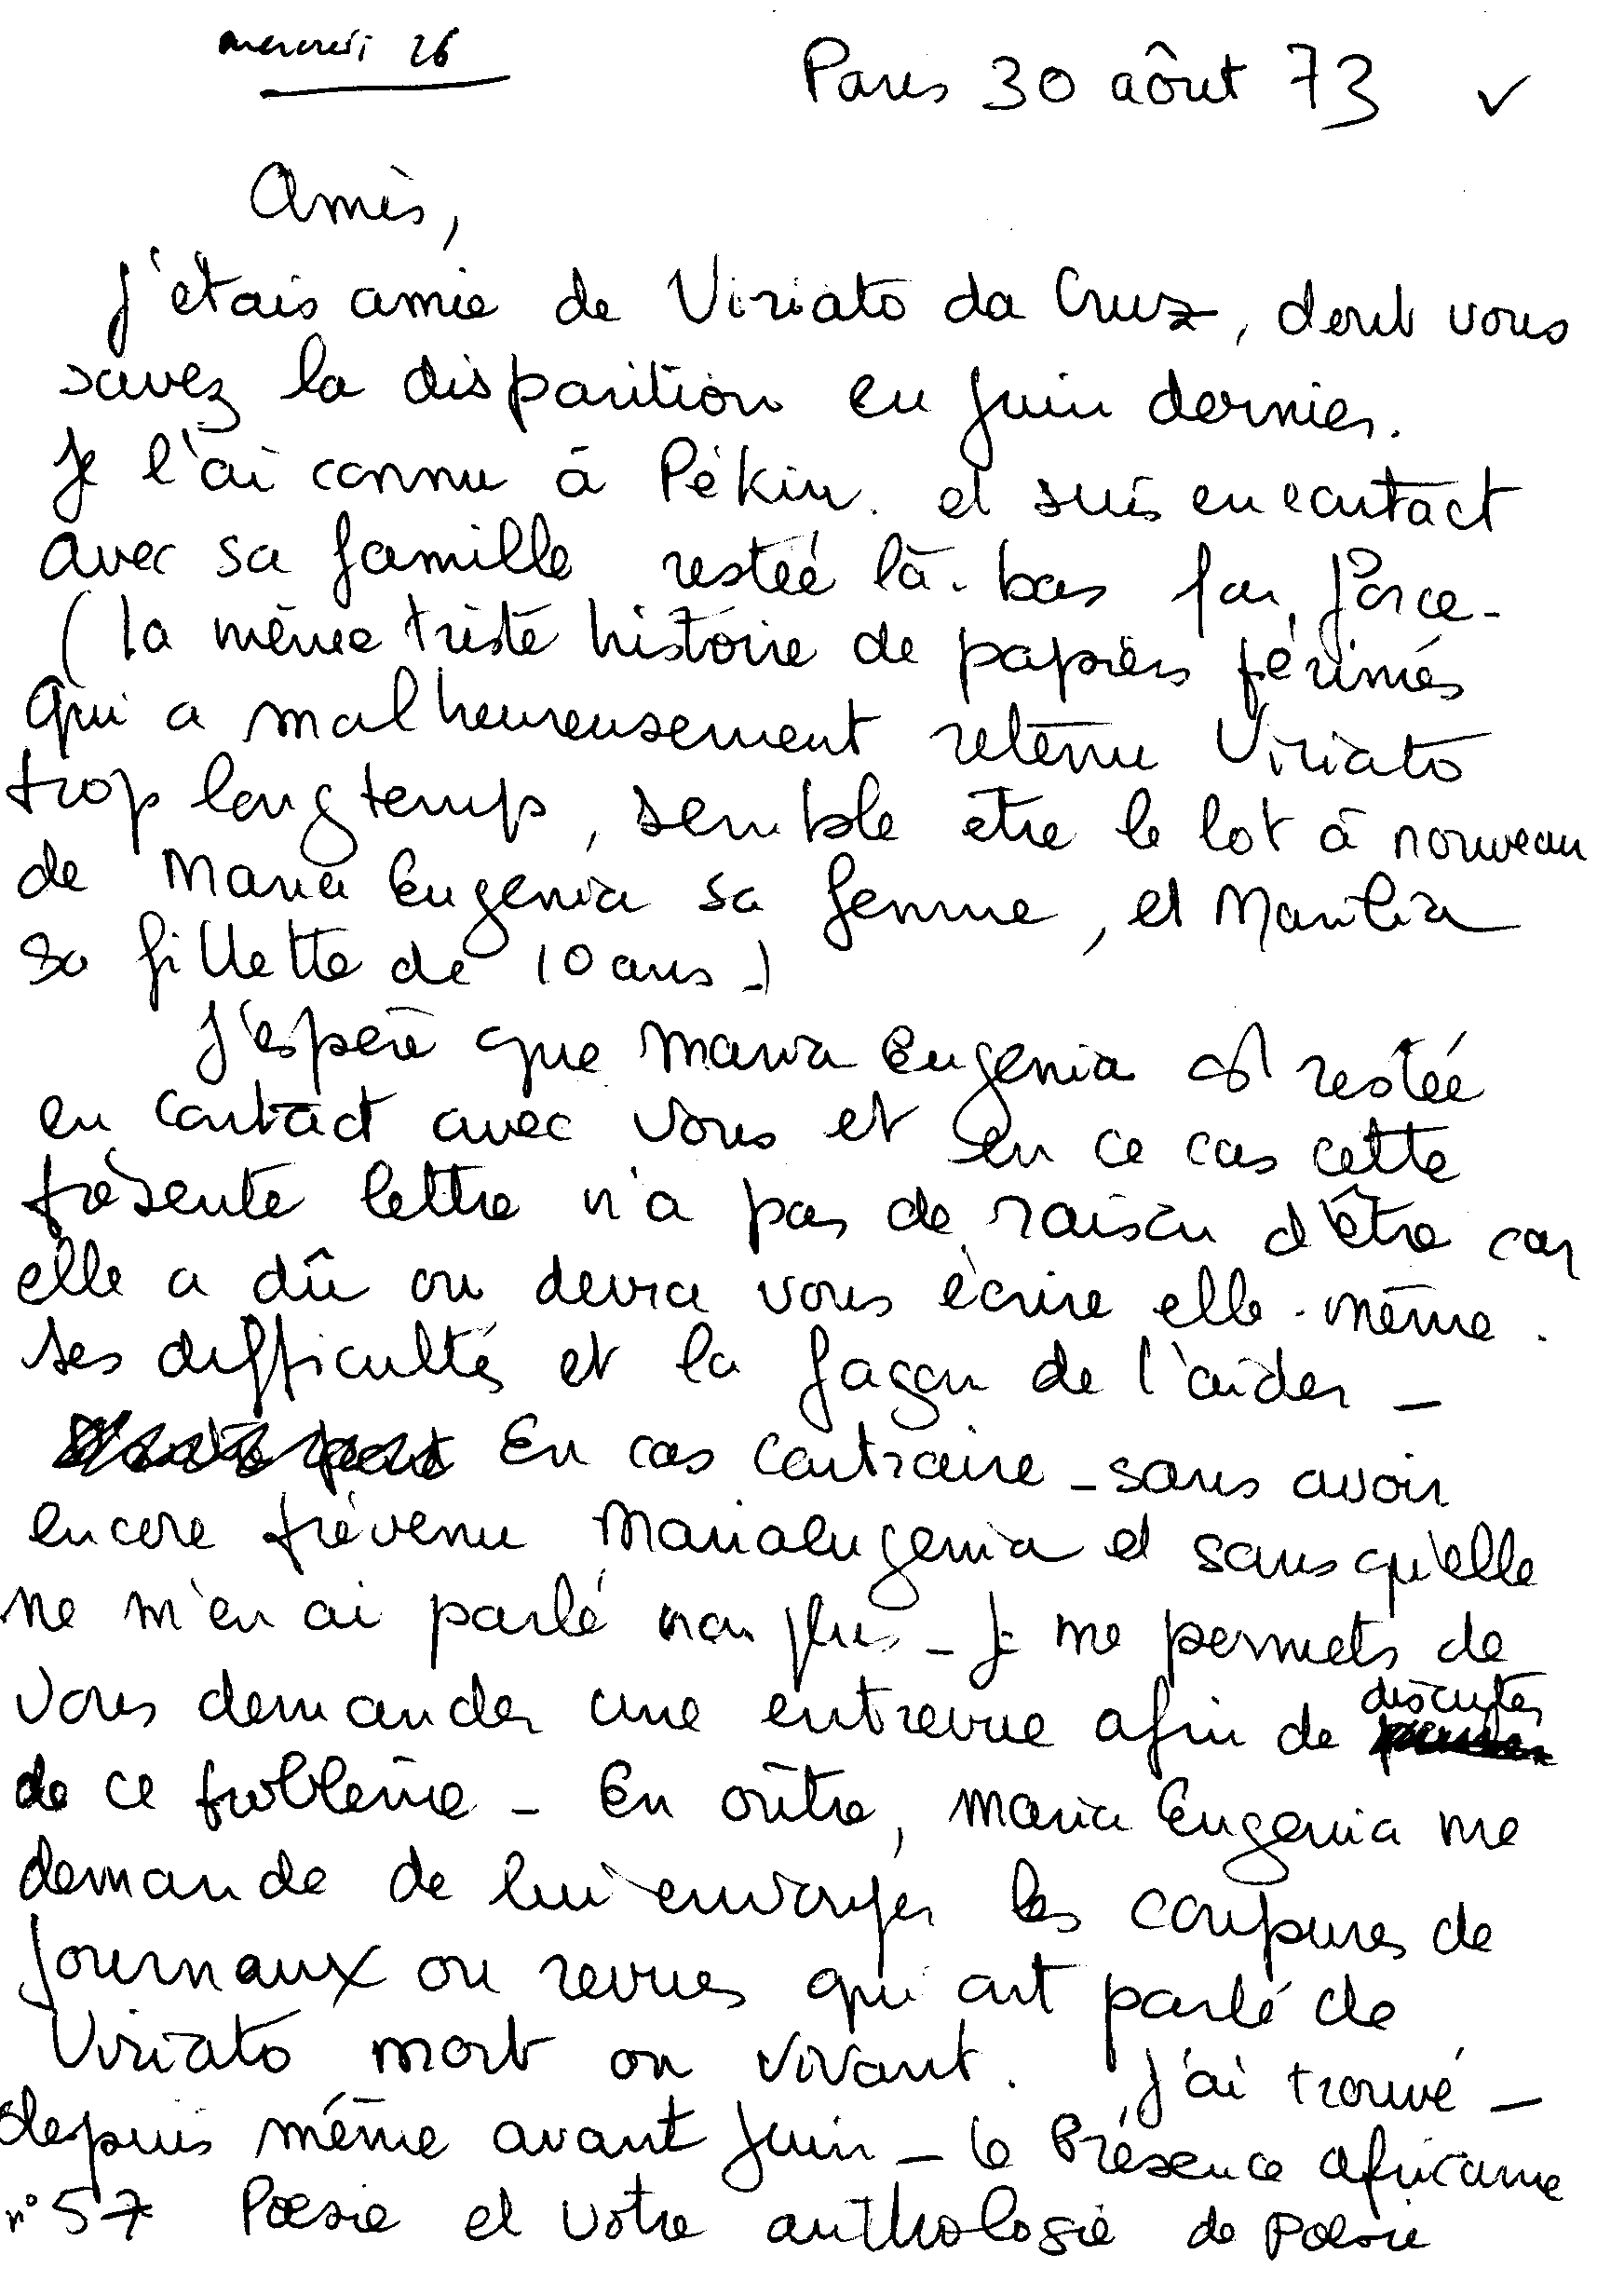 mercredi 26
Paris 30 août 73 ✓
Amis,
J'étais amie de Viriato da Cruz, dont vous
savez la disparition en juin dernier.
Je l'ai connu à Pékin. et suis en contact
avec sa famille restée là-bas par force -
(la même triste histoire de papiers périmés
qui a malheureusement retenu Viriato
trop longtemps, semble être le lot à nouveau
de Maria Eugenia sa femme, et Marilia
sa fillette de 10 ans -)
J'espère que Maria Eugenia est restée
en contact avec vous et en ce cas cette
présente lettre n'a pas de raison d'être car
elle a dû ou devra vous écrire elle-même.
ses difficultés et la façon de l'aider -
En cas contraire - sans avoir
encore prévenu Maria eugenia et sans qu'elle
ne m'en ai parlé non plus - je me permets de
vous demander une entrevue afin de discuter
de ce problème - En outre, Maria Eugenia me
demande de lui envoyer les coupures de
journaux ou revues qui ont parlé de
Viriato mort ou vivant. J'ai trouvé -
depuis même avant juin - le Présence africaine
n° 57 Poésie et votre anthologie de Poésie